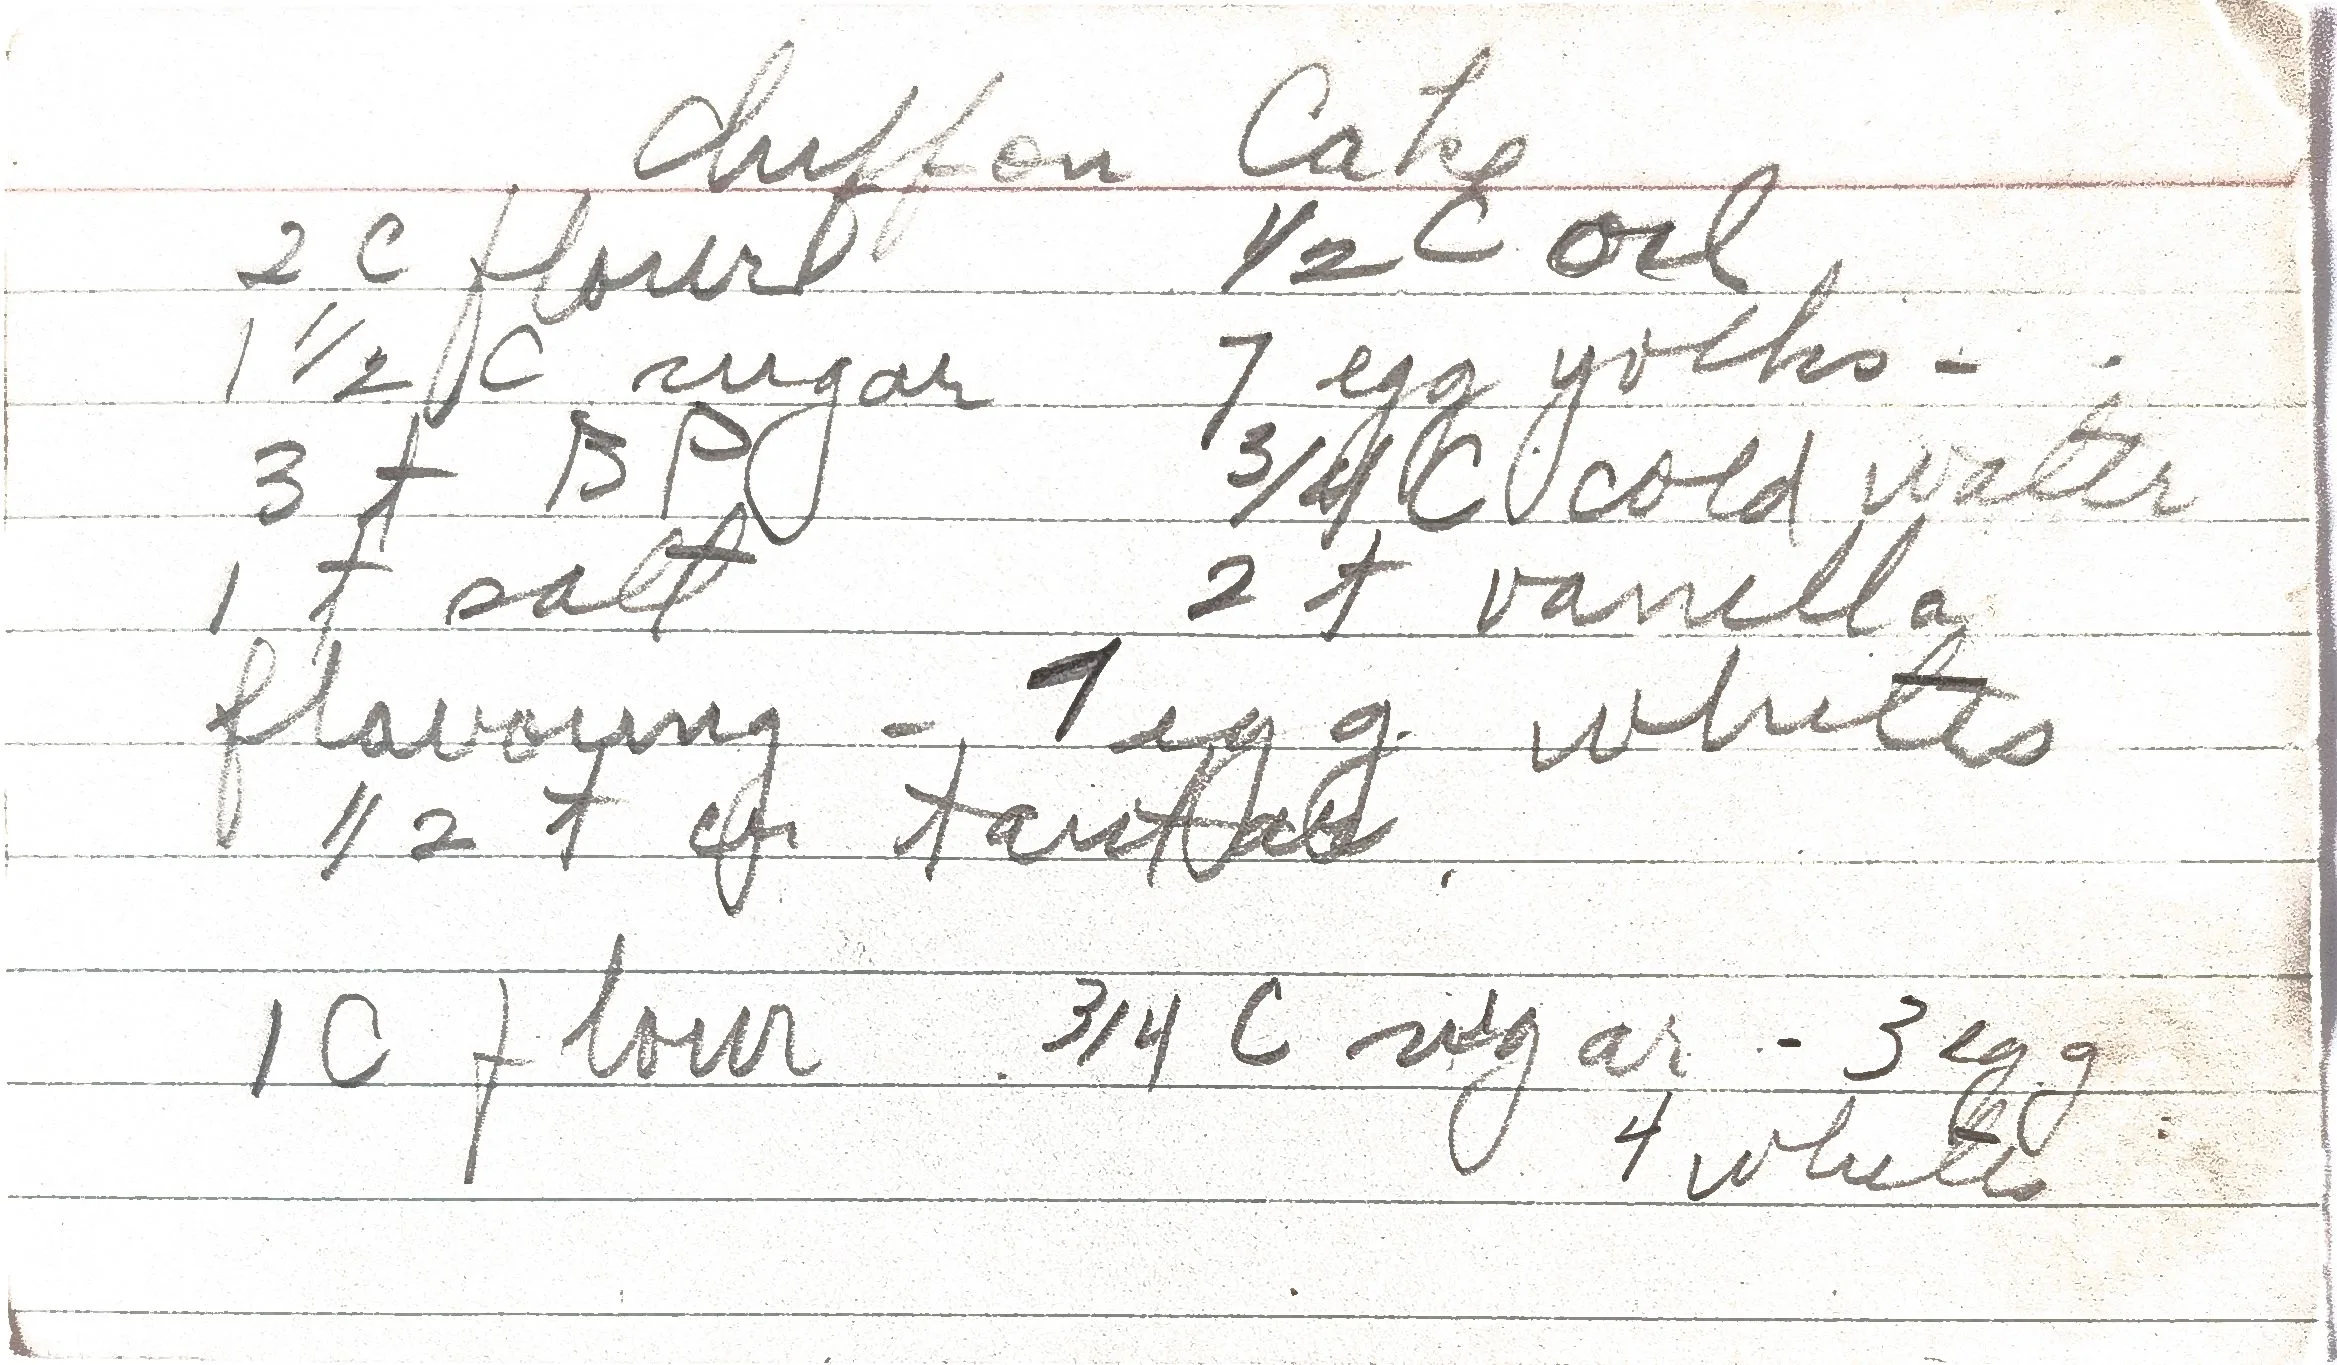 Chiffon Cake
2 C flour 1/2 C oil
1 1/2 C sugar 7 egg yolks -
3 t B P 3/4 C cold water
1 t salt 2 t vanilla
flavouring - 7 egg whites
1/2 t cr tartar.
1 C flour 3/4 C sugar - 3 egg
4 whites